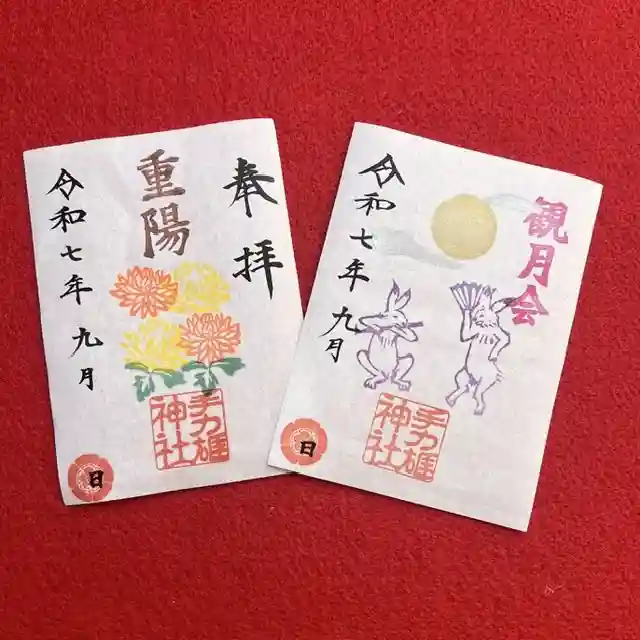 奉拝
重陽
令和七年九月
手力雄
神社
日
観月会
令和七年九月
手力雄
神社
日